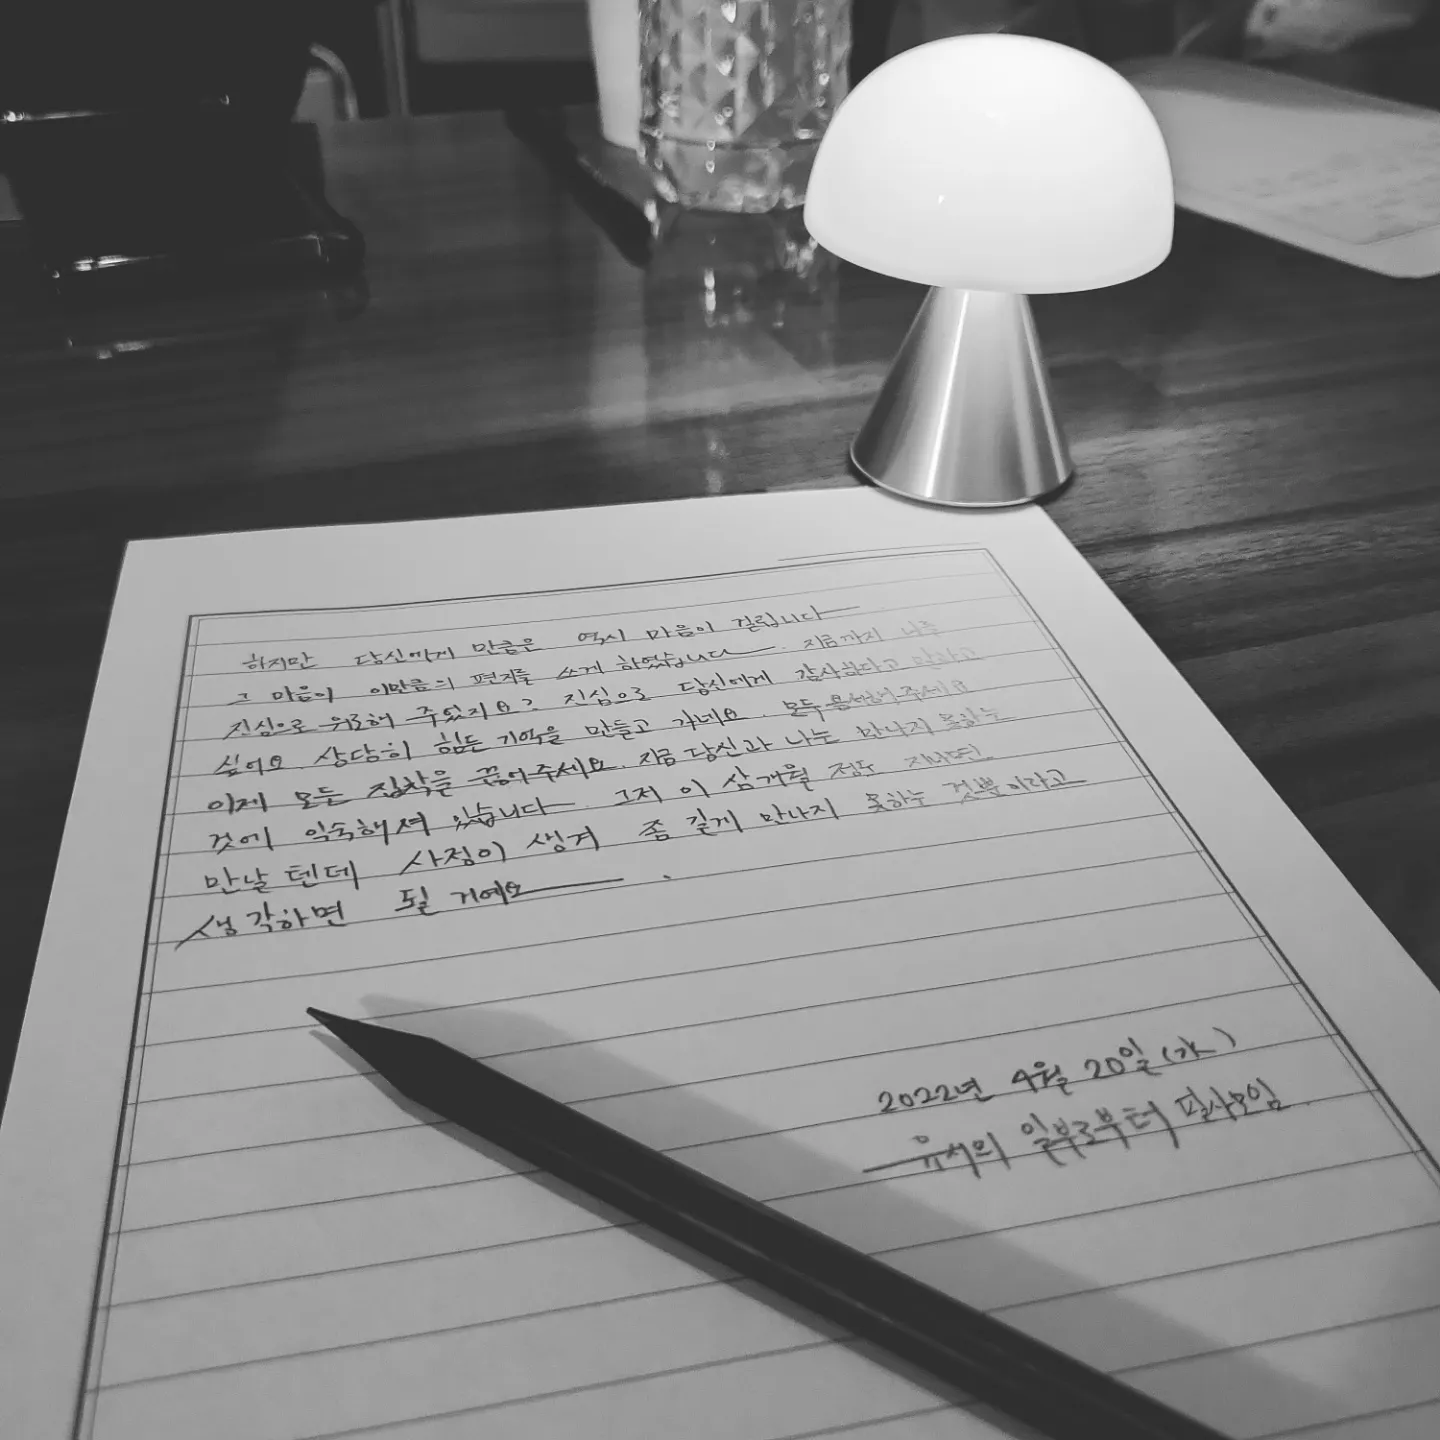 하지만 당신에게 만큼은 역시 마음이 걸립니다
그 마음이 이만큼의 편지를 쓰게 하였습니다. 지금까지 나를
진심으로 위로해 주었지요? 진심으로 당신에게 감사한다고 말하고
싶어요. 상당히 힘든 기억을 만들고 가네요. 모두 용서해 주세요
이제 모든 집착을 끊어주세요. 지금 당신과 나는 만나지 못하는
것에 익숙해져 있습니다. 그저 이 삼개월 정도 지나면
만날 텐데 사정이 생겨 좀 길게 만나지 못하는 것뿐이라고
생각하면 될 거예요.
2022년 4월 20일 (수)
유서의 일부로부터 필사모임.